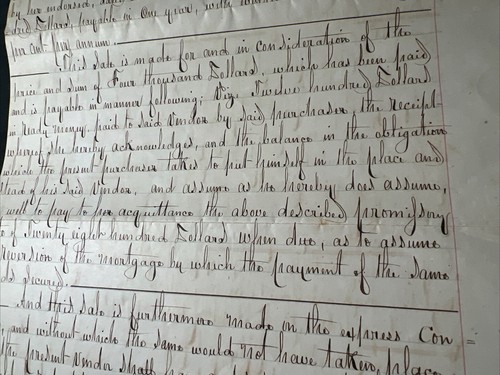 by her endorsed,
Dollars, payable in one year, with
per cent per annum.
This sale is made for and in consideration of the
price and sum of Four thousand Dollars, which has been paid
and is payable in manner following; Viz Twelve hundred Dollars
in ready money, paid to said Vendor by said purchaser, the receipt
whereof she hereby acknowledges, and the balance in the obligation
which the present purchaser takes to put himself in the place and
stead of his said Vendor, and assume as he hereby does assume,
well to pay to her acquittance the above described promissory
of Twenty eight hundred Dollars when due, as to assume
reversion of the mortgage by which the payment of the same
is secured.
And this sale is furthermore made on the express Con =
and without which the same would not have taken place,
the present Vendor shall